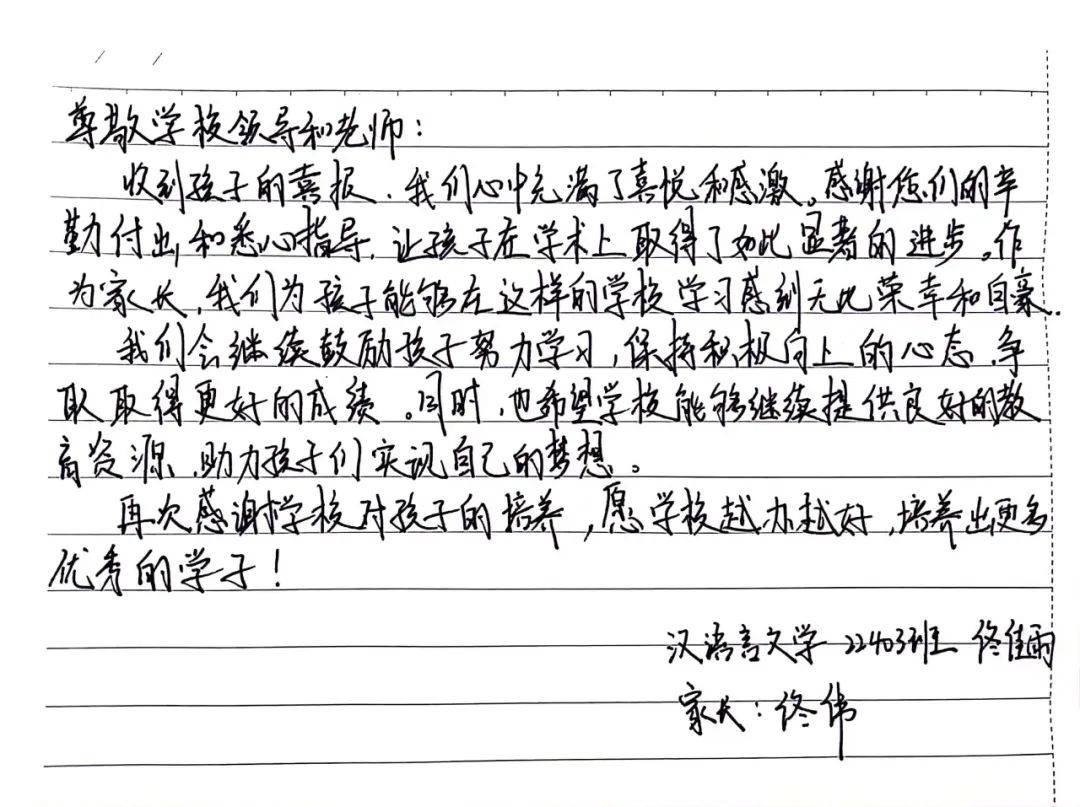 尊敬学校领导和老师：
收到孩子的喜报，我们心中充满了喜悦和感激。感谢您们的辛
勤付出和悉心指导，让孩子在学术上取得了如此显著的进步。作
为家长，我们为孩子能够在这样的学校学习感到无比荣幸和自豪.
我们会继续鼓励孩子努力学习，保持积极向上的心态，争
取取得更好的成绩。同时，也希望学校能够继续提供良好的教
育资源，助力孩子们实现自己的梦想。
再次感谢学校对孩子的培养，愿学校越办越好，培养出更多
优秀的学子！
汉语言文学 22403班 佟佳雨
家长：佟伟